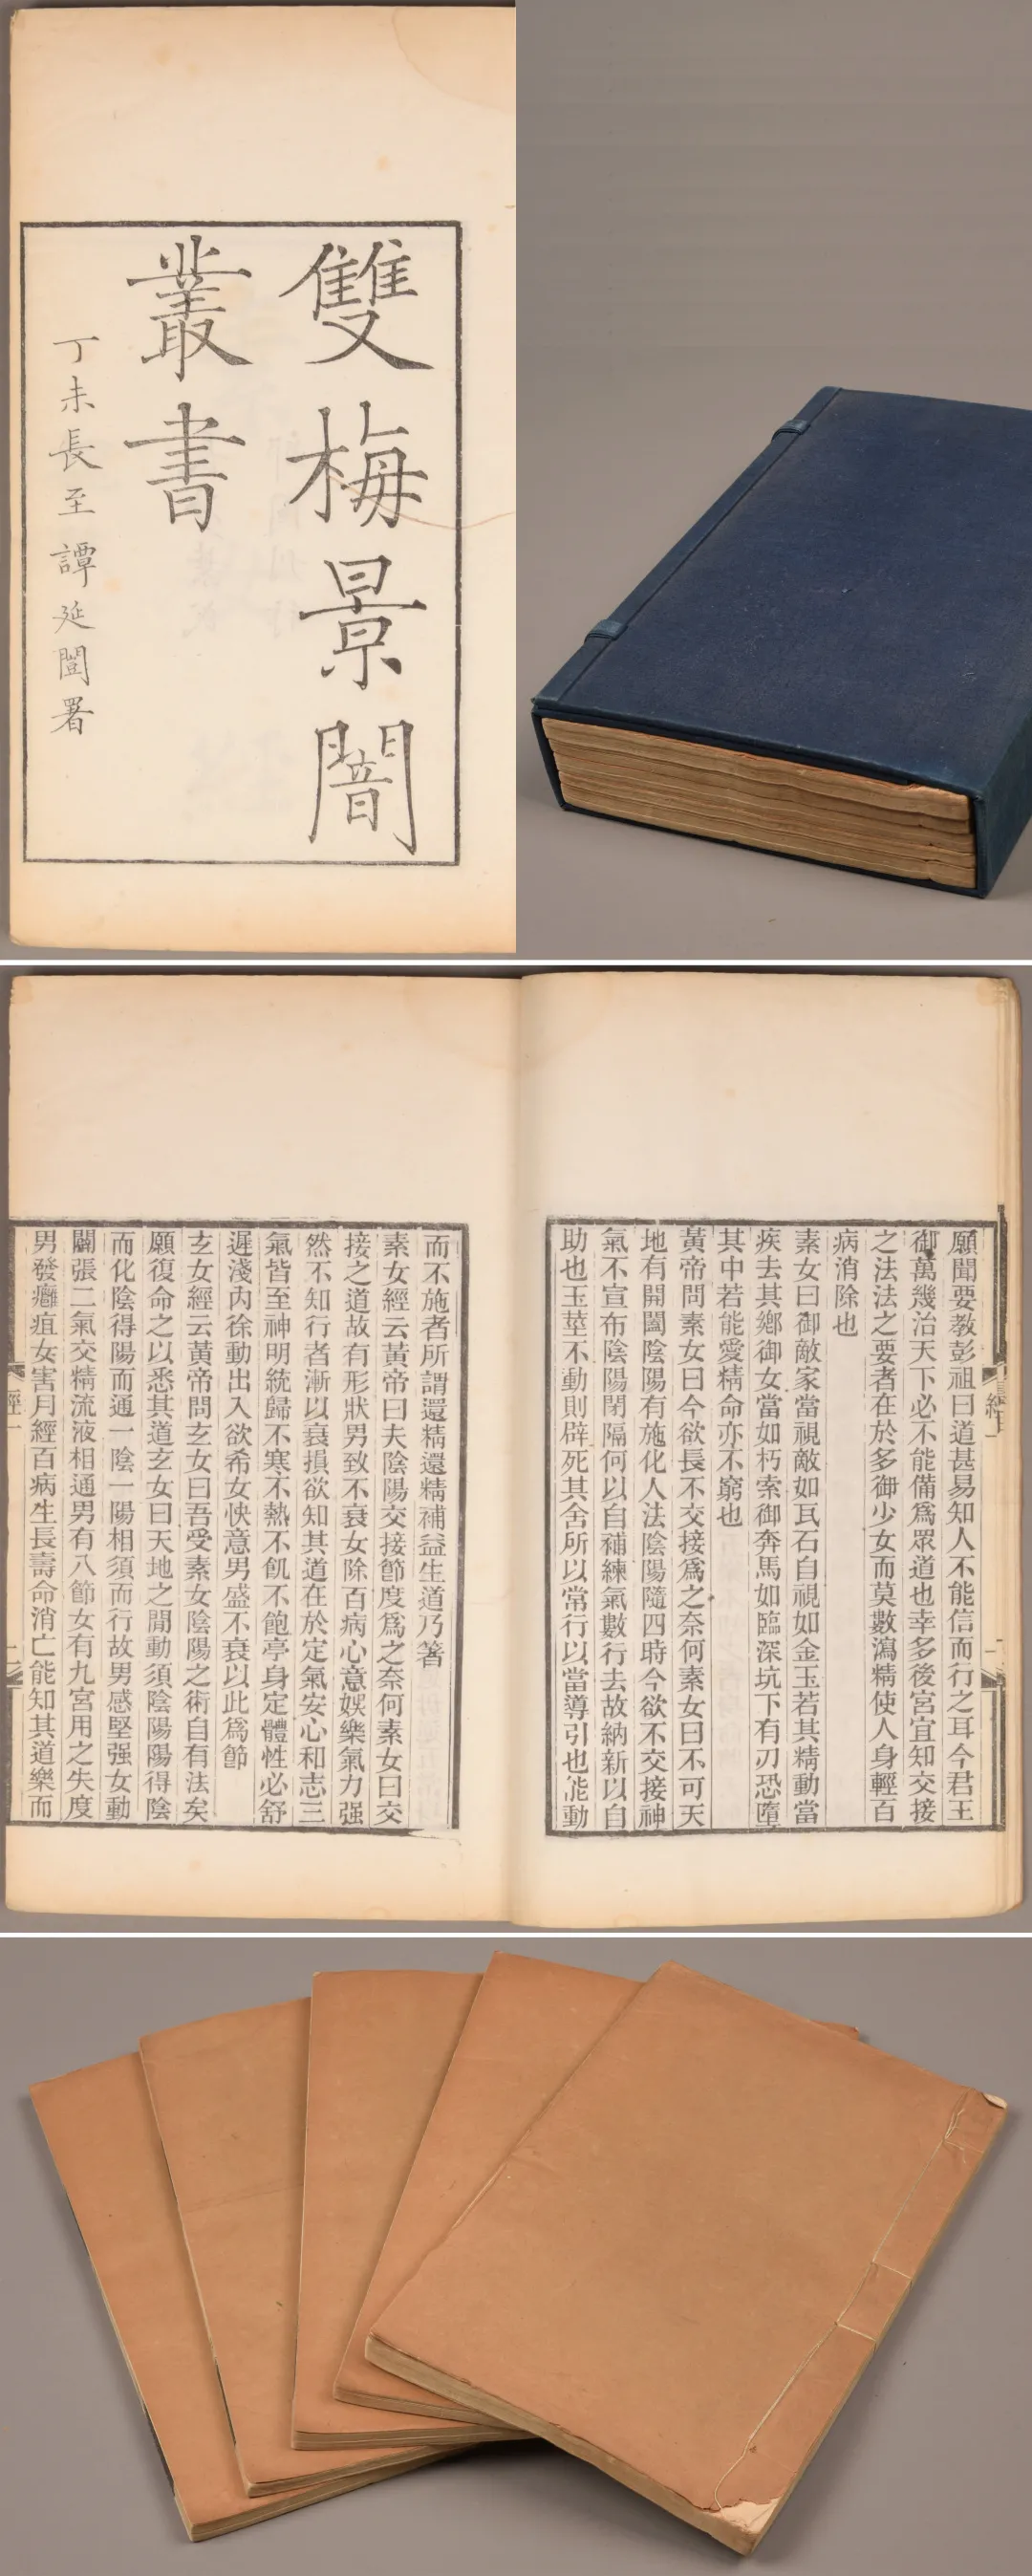 雙梅景闇
叢書
丁未長至譚延闓署
願聞要教彭祖曰道甚易知人不能信而行之耳今君王
御萬幾治天下必不能備爲眾道也幸多後宮宜知交接
之法法之要者在於多御少女而莫數瀉精使人身輕百
病消除也
素女曰御敵家當視敵如瓦石自視如金玉若其精動當
疾去其鄉御女當如朽索御奔馬如臨深坑下有刃恐墮
其中若能愛精命亦不窮也
黃帝問素女曰今欲長不交接爲之奈何素女曰不可天
地有開闔陰陽有施化人法陰陽隨四時今欲不交接神
氣不宣布陰陽閉隔何以自補練氣數行去故納新以自
助也玉莖不動則辟死其舍所以常行以當導引也能動
而不施者所謂還精還精補益生道乃著
素女經云黃帝曰夫陰陽交接節度爲之奈何素女曰交
接之道故有形狀男致不衰女除百病心意娛樂氣力强
然不知行者漸以衰損欲知其道在於定氣安心和志三
氣皆至神明統歸不寒不熱不飢不飽亭身定體性必舒
遲淺內徐動出入欲希女快意男盛不衰以此爲節
玄女經云黃帝問玄女曰吾受素女陰陽之術自有法矣
願復命之以悉其道玄女曰天地之閒動須陰陽陽得陰
而化陰得陽而通一陰一陽相須而行故男感堅强女動
闢張二氣交精流液相通男有八節女有九宮用之失度
男發癰疽女害月經百病生長壽命消亡能知其道樂而